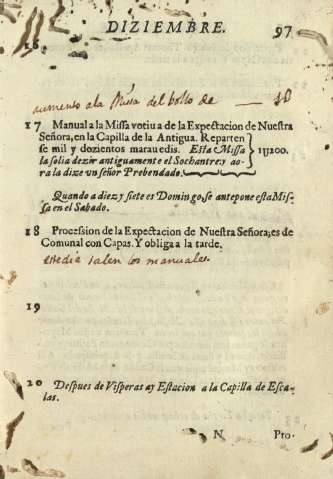 DIZIEMBRE. 97
16
aumento a la Missa del bollo de
17 Manual a la Missa votiua de la Expectacion de Nuestra
Señora, en la Capilla de la Antigua. Reparten
se mil y dozientos marauedis. Esta Missa
la solia dezir antiguamente el Sochantre: y ao-
ra la dize vn señor Prebendado.
Quando a diez y siete es Domingo, se antepone esta Mis-
sa en el Sabado.
18 Procession de la Expectacion de Nuestra Señora; es de
Comunal con Capas. Y obliga a la tarde.
este dia salen los manuales
19
20 Despues de Visperas ay Estacion a la Capilla de Esca-
las.
N Pro-